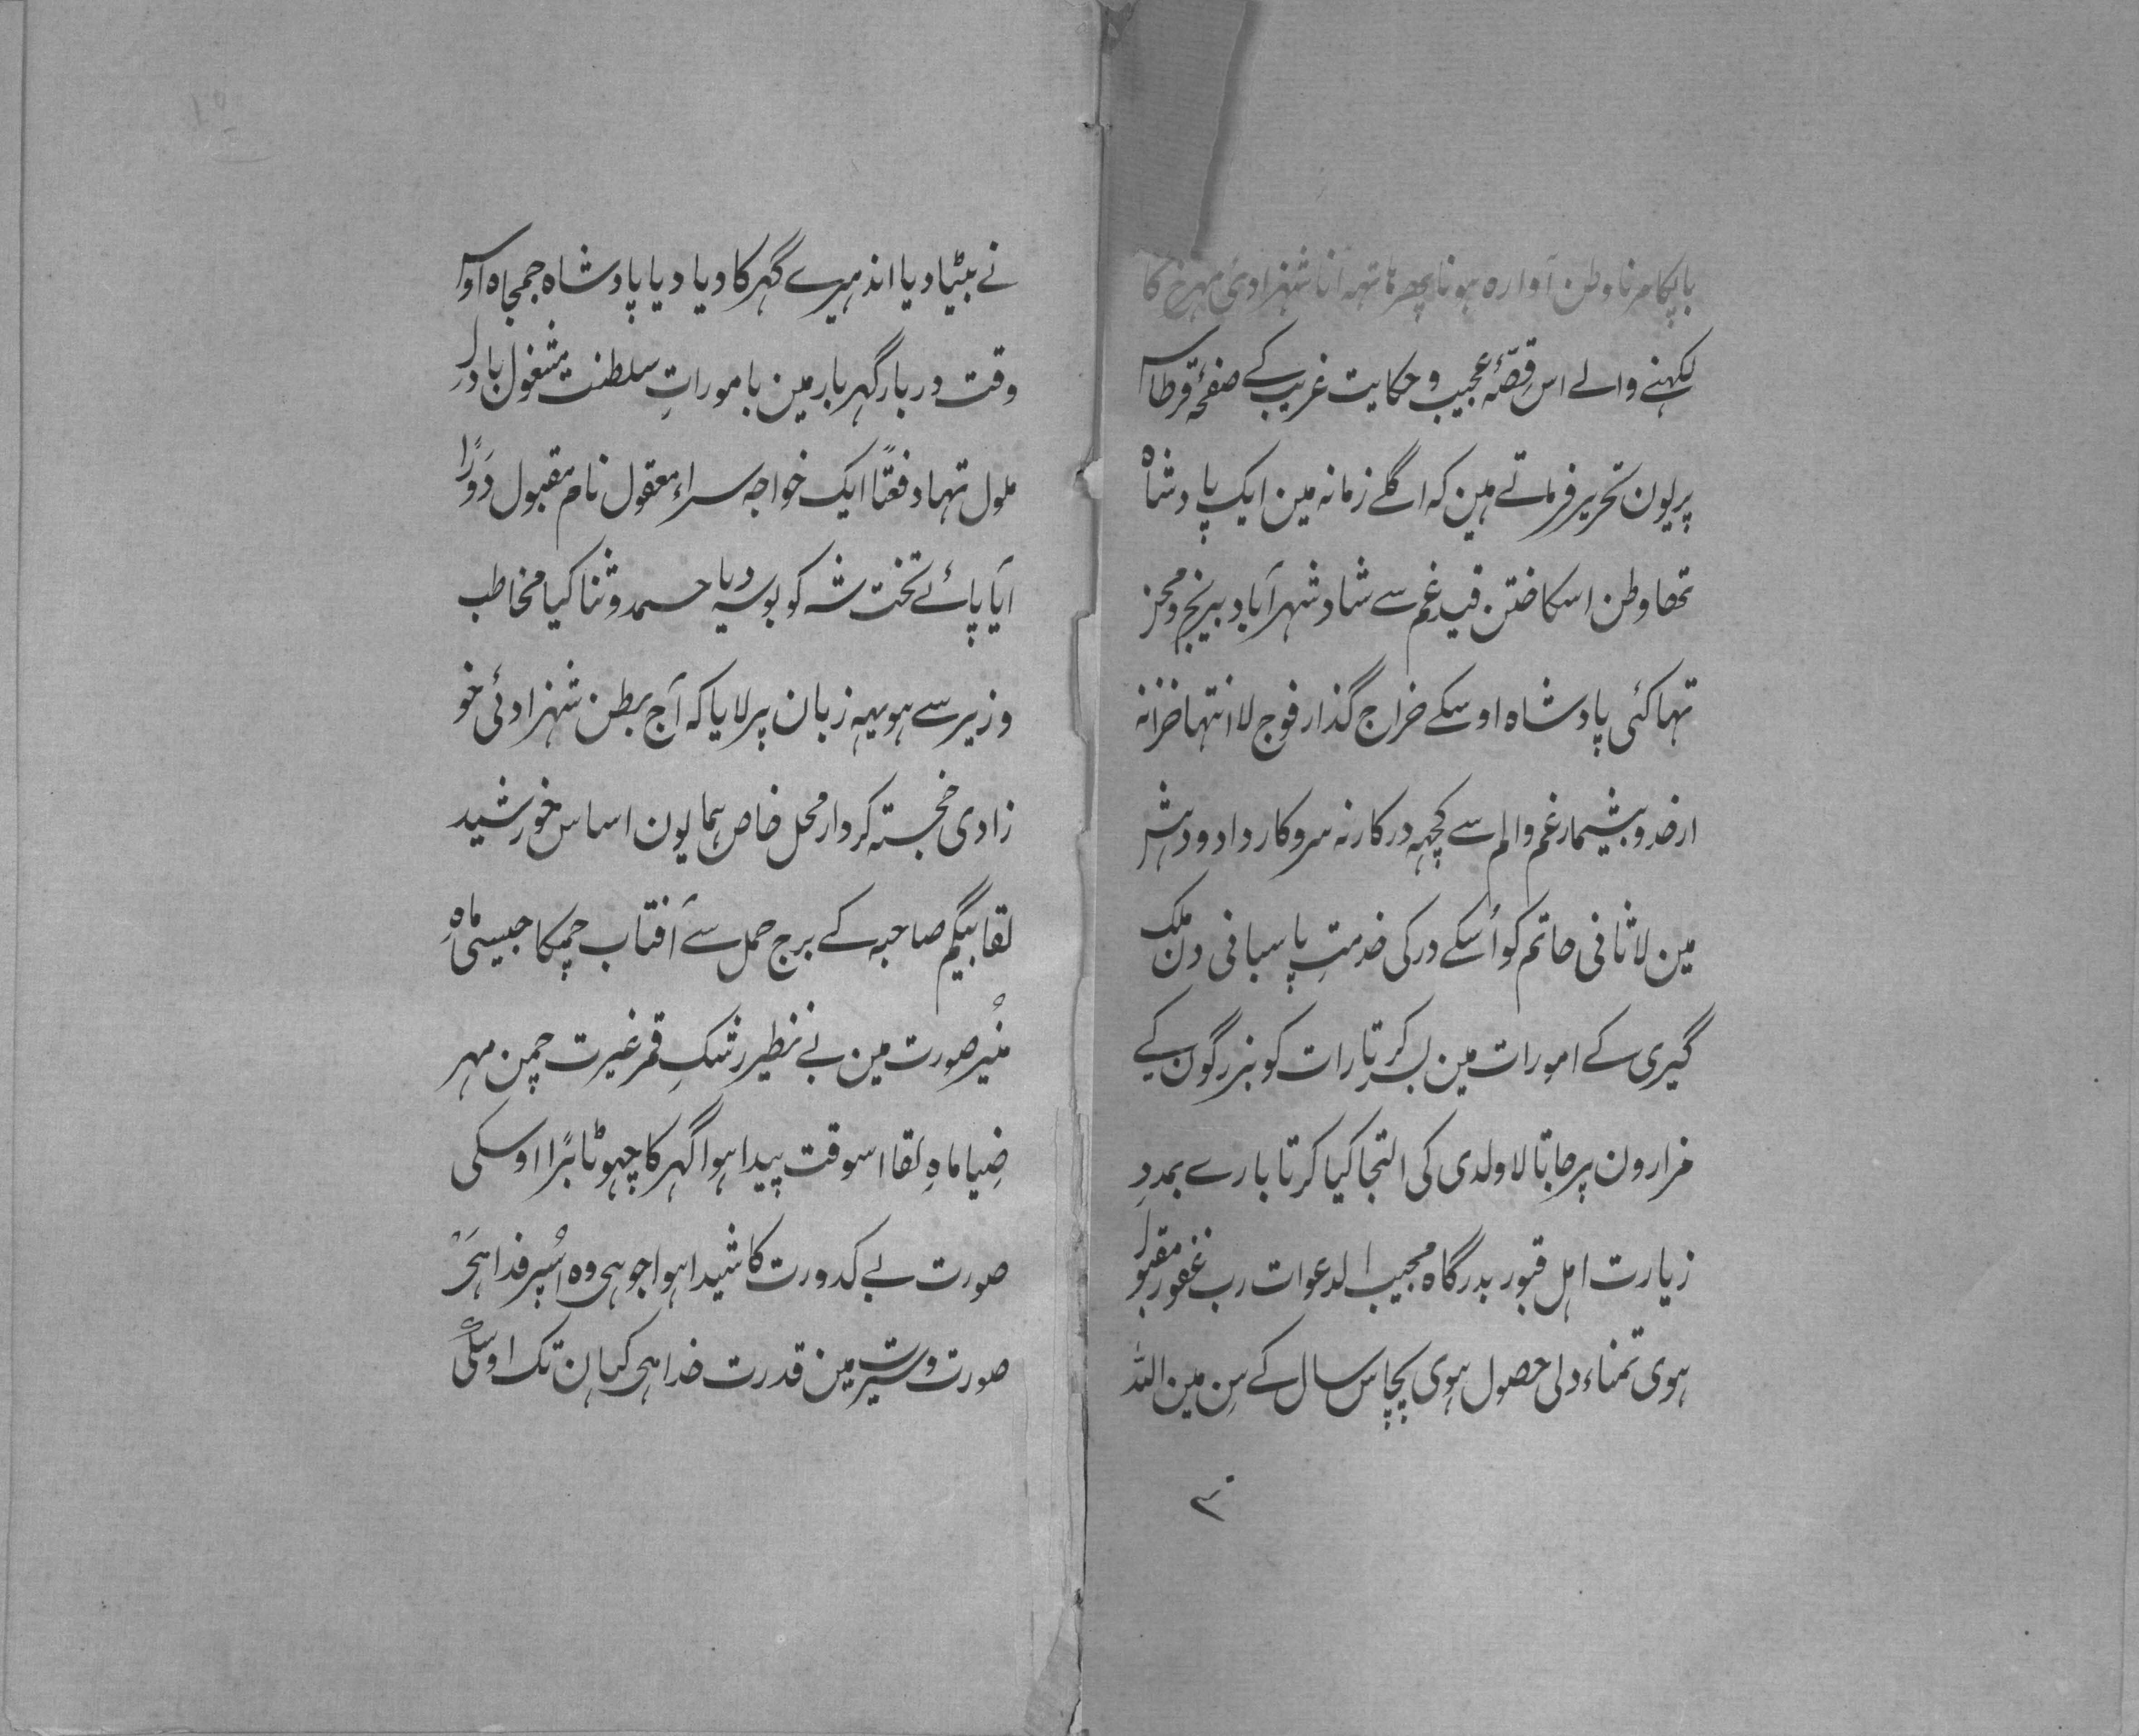 باپکا مرنا وطن آوارہ ہونا پھر ہاتہہ آنا شہزادئ مہرخ کا
لکہنے والے اس قصّۂ عجیب و حکایت غریب کے صفحۂ قرطاس
پر یون تحریر فرماتے ہین کہ اگلے زمانہ مین ایک پادشاہ
تھا وطن اسکا ختن قید غم سے شاد شہر آباد بیرنج و محن
تہا کئی پادشاہ اوسکے خراج گذار فوج لا انتہا خزانہ
از حد و بیشمار غم و الم سے کچہہ درکار نہ سروکار داد و دہش
مین لاثانی حاتم کو اُسکے در کی خدمتِ پاسبانی دن ملک
گیری کے امورات مین بسر کرتا رات کو بزرگون کے
مزارون پر جاتا لاولدی کی التجا کیا کرتا بارے بمددِ
زیارت اہل قبور بدرگاہ مجیب الدعوات رب غفور مقبول
ہوی تمناء دلی حصول ہوی پچاس سال کے سِن مین اللہ
۳
نے بیٹیا دیا اندہیرے گہر کا دیا دیا پادشاہ جمجاہ اوس
وقت دربار گہربار مین باموراتِ سلطنت مشغول با دل
ملول تہا دفعتًا ایک خواجہ سراء معقول نام مقبول دَوڑا
آیا پائے تخت شہ کو بوسہ دیا حمد و ثنا کیا مخاطب
وزیر سے ہو یہہ زبان پر لایا کہ آج بطن شہزادئی خو
زادی خجستہ کردار محل خاص ہمایون اساس خورشید
لقا بیگم صاحبہ کے برج حمل سے آفتاب چمکا جیسی ماہِ
مُنیر صورت مین بے نظیر رشکِ قمر غیرت چمن مہر
ضِیا ماہِ لقا اسوقت پیدا ہوا گہر کا چہوٹا بڑا اوسکی
صورت بے کدورت کا شیدا ہوا جو ہی وہ اسُپر فدا ہَی
صورت و سیرت مین قدرت خدا ہی کہان تک اوسکی